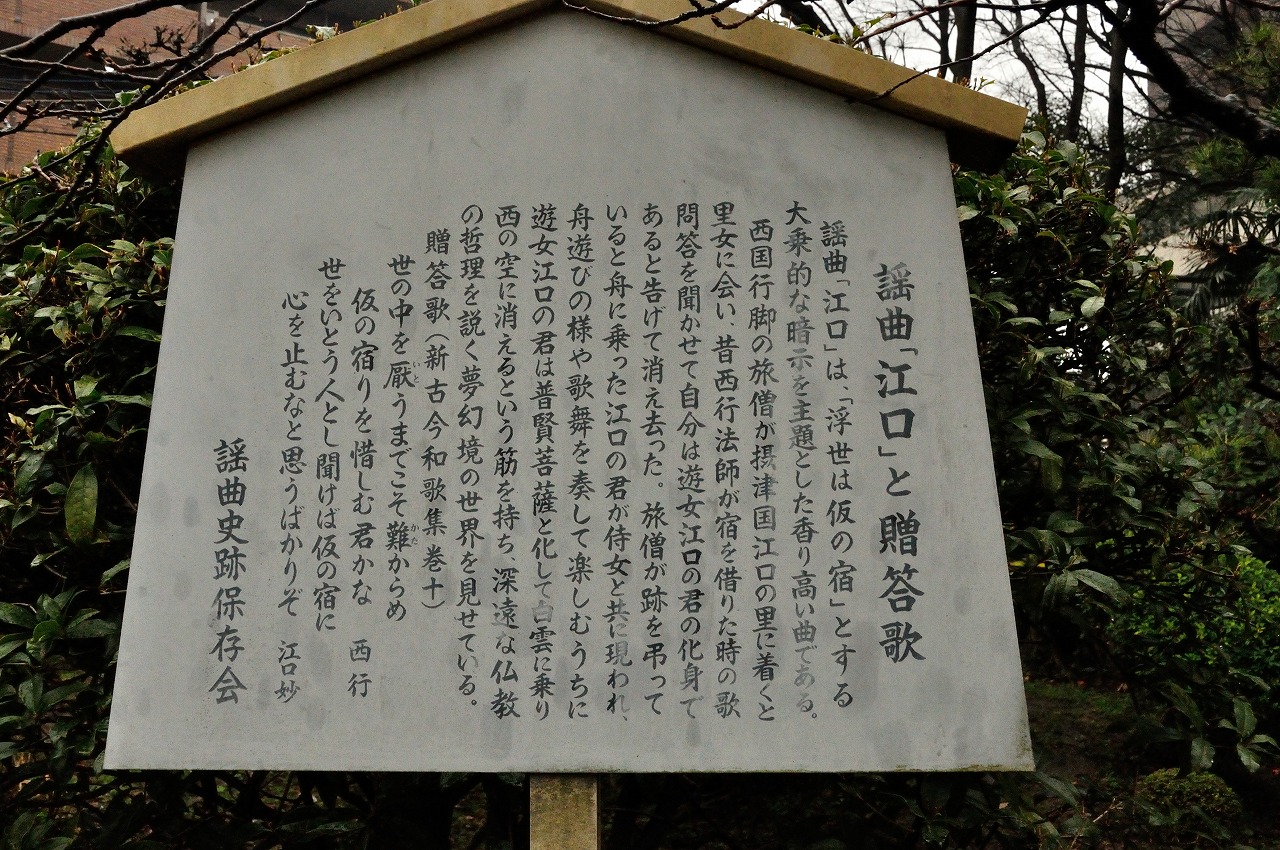 謡曲「江口」と贈答歌
謡曲「江口」は、「浮世は仮の宿」とする
大乗的な暗示を主題とした香り高い曲である。
西国行脚の旅僧が摂津国江口の里に着くと
里女に会い、昔西行法師が宿を借りた時の歌
問答を聞かせて自分は遊女江口の君の化身で
あると告げて消え去った。旅僧が跡を弔って
いると舟に乗った江口の君が侍女と共に現われ、
舟遊びの様や歌舞を奏して楽しむうちに
遊女江口の君は普賢菩薩と化して白雲に乗り
西の空に消えるという筋を持ち、深遠な仏教
の哲理を説く夢幻境の世界を見せている。
贈答歌(新古今和歌集巻十)
世の中を厭うまでこそ難からめ
いと
かた
仮の宿りを惜しむ君かな 西行
世をいとう人とし聞けば仮の宿に
心を止むなと思うばかりぞ 江口妙
謡曲史跡保存会